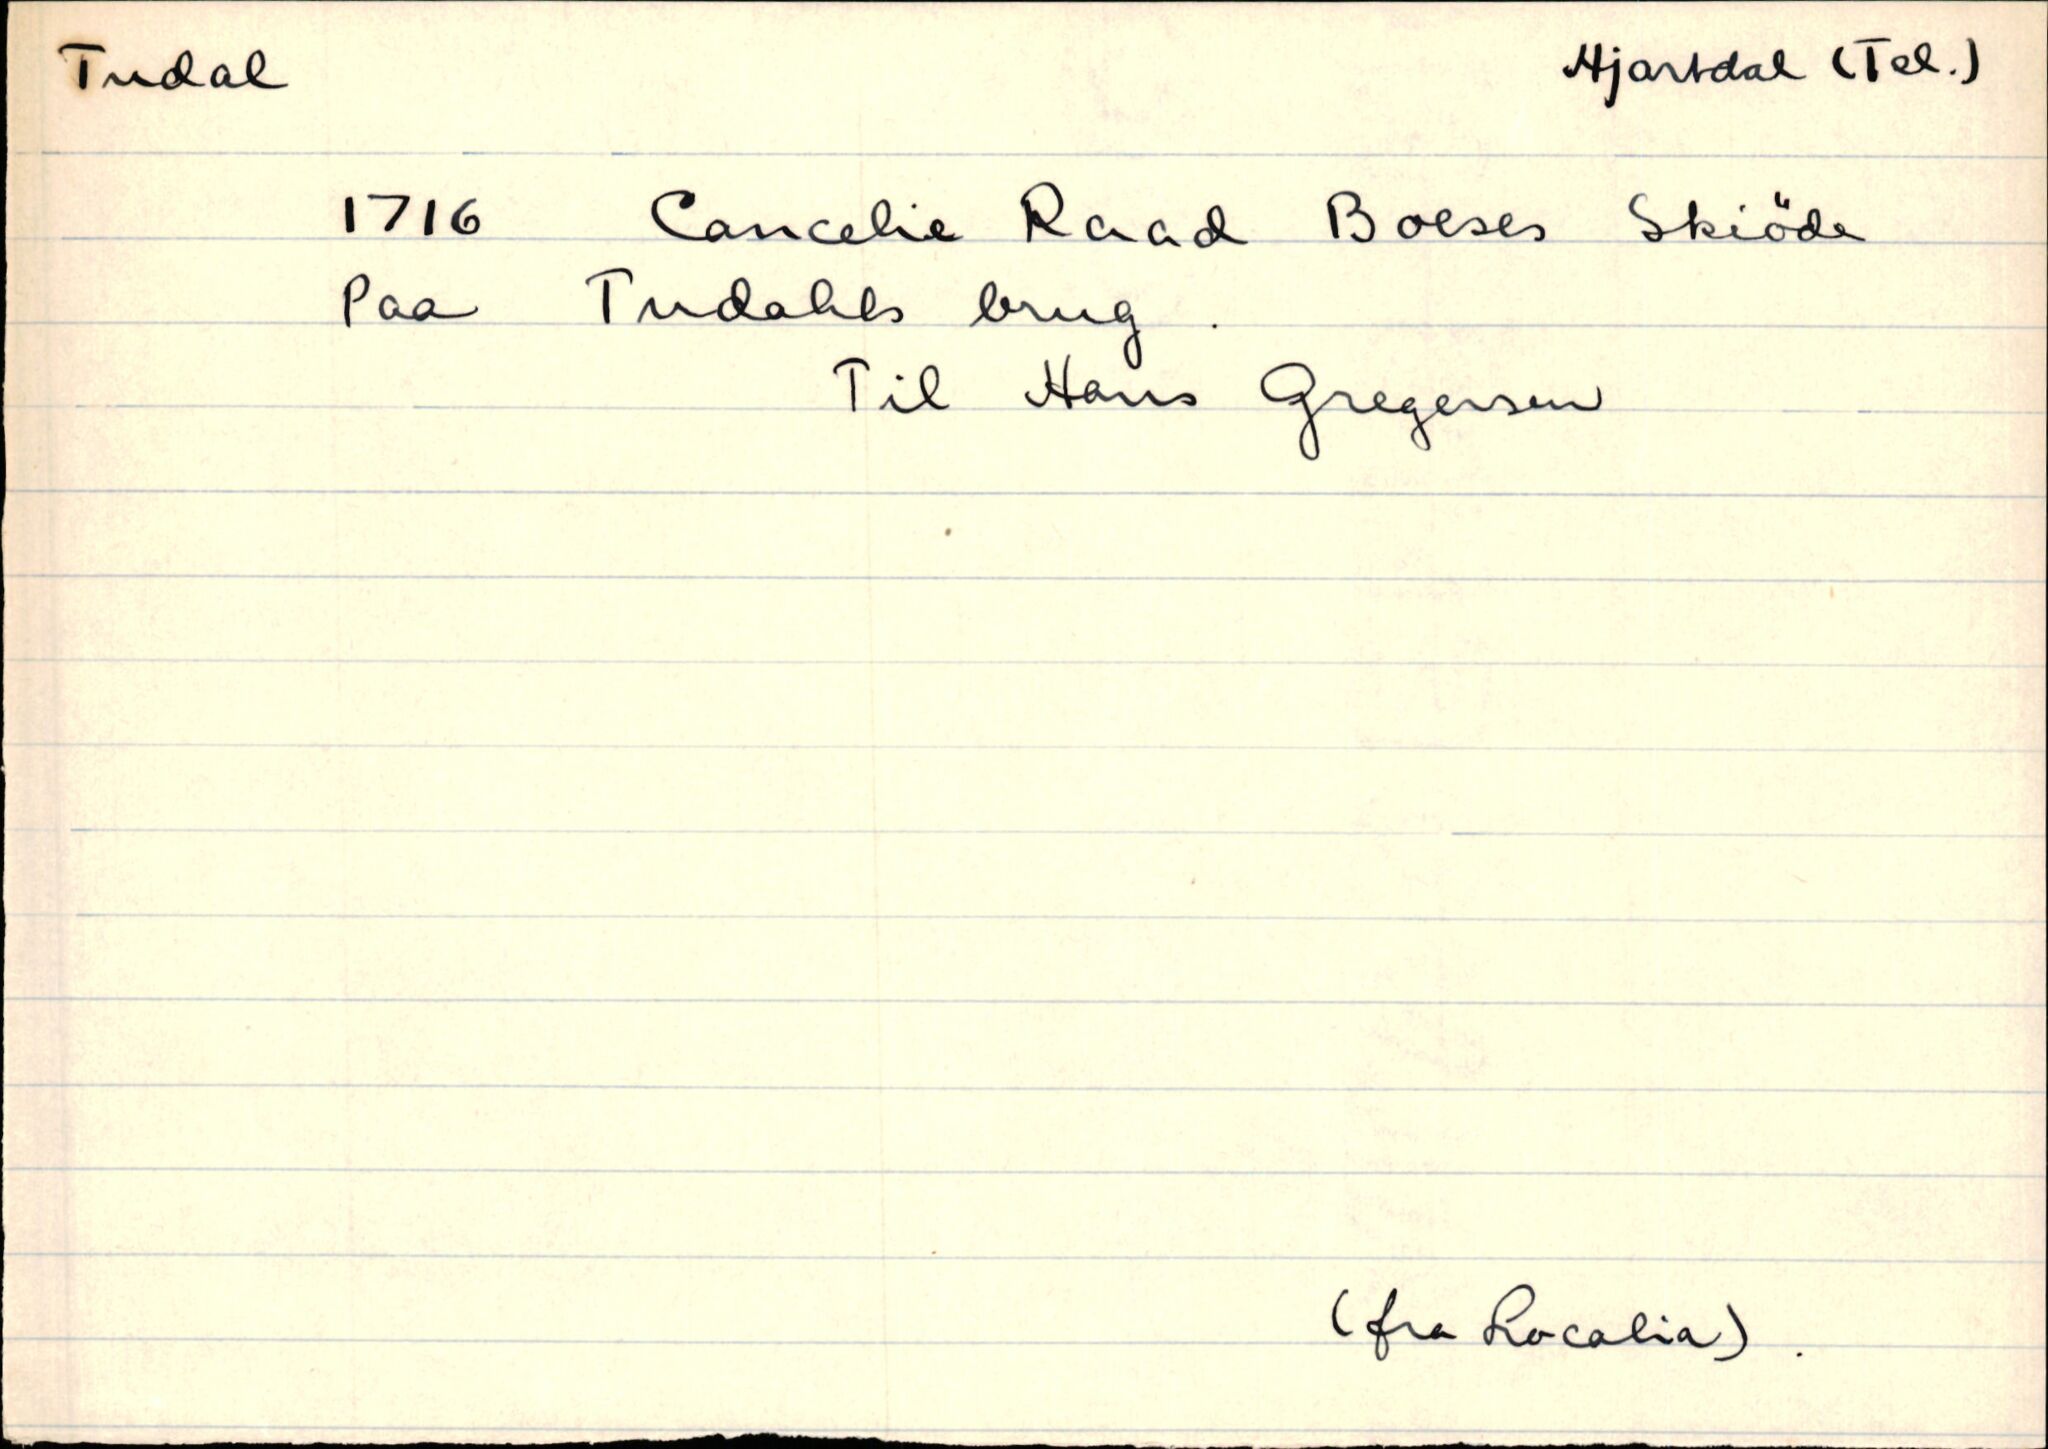 Tudal Hjartdal (Tel.)
1716 Cancelie Raad Boeses Skiöde
Paa Tudahls brug.
Til Hans Gregersen
(fra Localia).